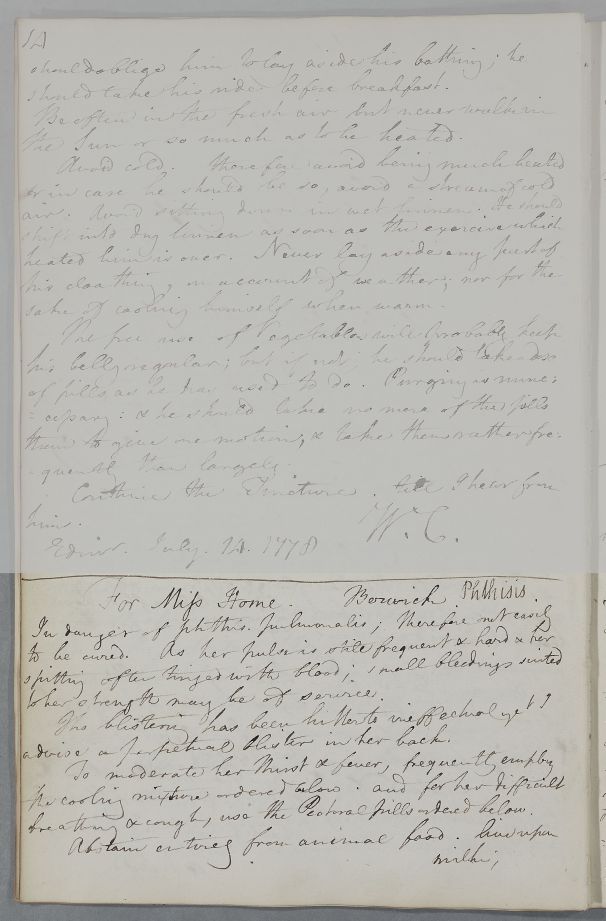 14
should oblige him to lay aside his bathing; he
should take his ride before breakfast.
Be often in the fresh air but never walk in
the Sun or so much as to be heated.
Avoid cold. Therefore avoid being much heated
or in case he should be so, avoid a stream of cold
air. Avoid sitting down in wet linnen. He should
shift into dry linnen as soon as the exercise which
heated him is over. Never lay aside any part of
his cloathing, on account of weather; nor for the
sake of cooling himself when warm.
The free use of Vegetables will probably keep
his belly regular; but if not, he should take a dose
of pills as he has used to do. Purging is unne:
:cessary: & he should take no more of the pills
than to give one motion, & take them rather fre-
-quently than largely.
Continue the Tincture till I hear from
him.
W. C.
Edinr. July. 14. 1778
For Miss Home. Berwick Phthisis.
In danger of phthis. pulmonalis; therefore not easily
to be cured. As her pulse is still frequent & hard & her
spitting often tinged with blood, small bleedings suited
to her strength may be of service.
Tho blistering has been hitherto ineffectual yet I
advise a perpetual blister in her back.
To moderate her thirst & fever, frequently employ
the cooling mixture ordered below. and for her difficult
breathing & cough, use the Pectoral pills ordered below.
Abstain entirely from animal food. Live upon
milk,